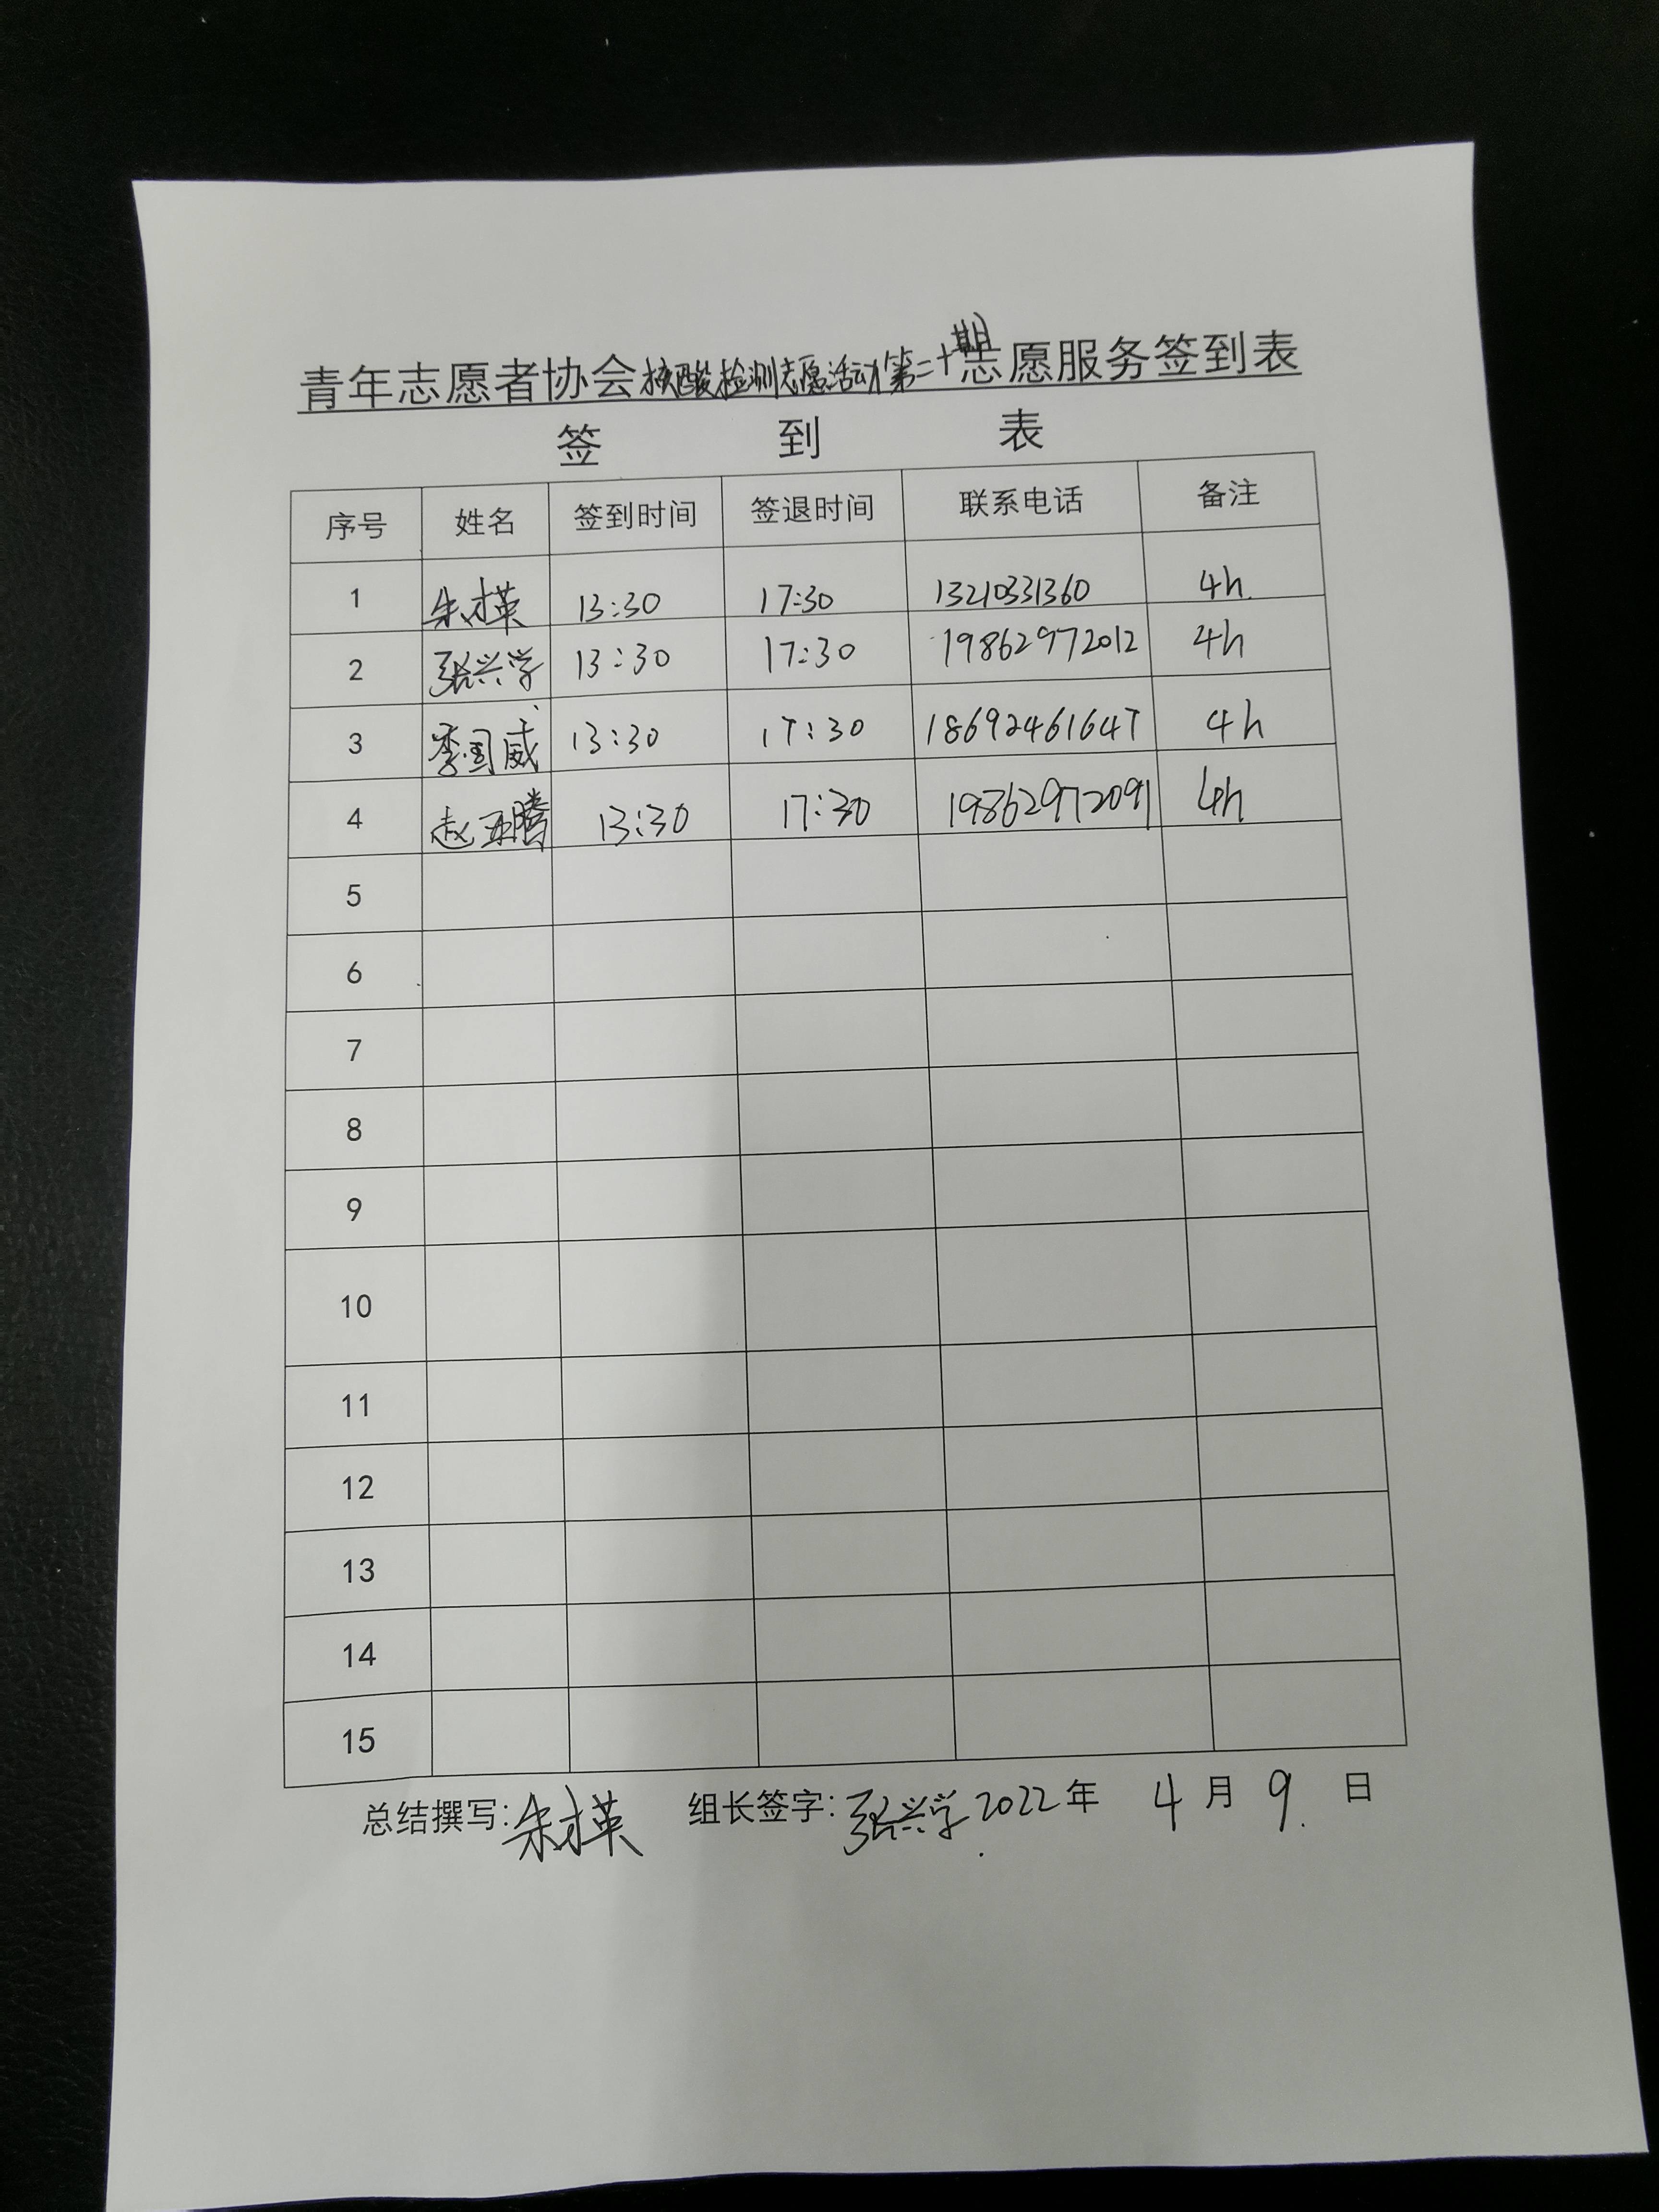 青年志愿者协会核酸检测志愿活动第二十期志愿服务签到表
签 到 表
序号 姓名 签到时间 签退时间 联系电话 备注
1 朱才英 13:30 17:30 13210331360 4h
2 张兴学 13:30 17:30 19862972012 4h
3 李国威 13:30 17:30 18692461647 4h
4 赵玉腾 13:30 17:30 19862972091 4h
5
6
7
8
9
10
11
12
13
14
15
总结撰写:朱才英 组长签字:张兴学 2022年 4月 9日